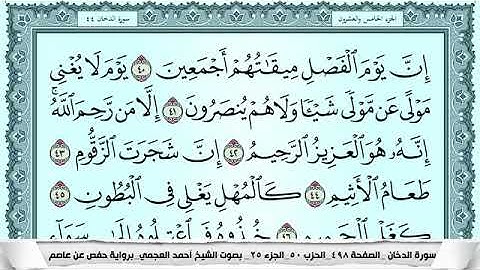 الجزء الخامس والعشرون
سورة الدخان ٤٤
إِنَّ يَوْمَ ٱلْفَصْلِ مِيقَٰتُهُمْ أَجْمَعِينَ ٤٠ يَوْمَ لَا يُغْنِى
مَوْلًى عَن مَّوْلًى شَيْـًٔا وَلَا هُمْ يُنصَرُونَ ٤١ إِلَّا مَن رَّحِمَ ٱللَّهُ ۚ
إِنَّهُۥ هُوَ ٱلْعَزِيزُ ٱلرَّحِيمُ ٤٢ إِنَّ شَجَرَتَ ٱلزَّقُّومِ ٤٣
طَعَامُ ٱلْأَثِيمِ ٤٤ كَٱلْمُهْلِ يَغْلِى فِى ٱلْبُطُونِ ٤٥
سورة الدخان _ الصفحة ٤٩٨ _ الحزب ٥٠ _ الجزء ٢٥ _ بصوت الشيخ أحمد العجمي_ برواية حفص عن عاصم